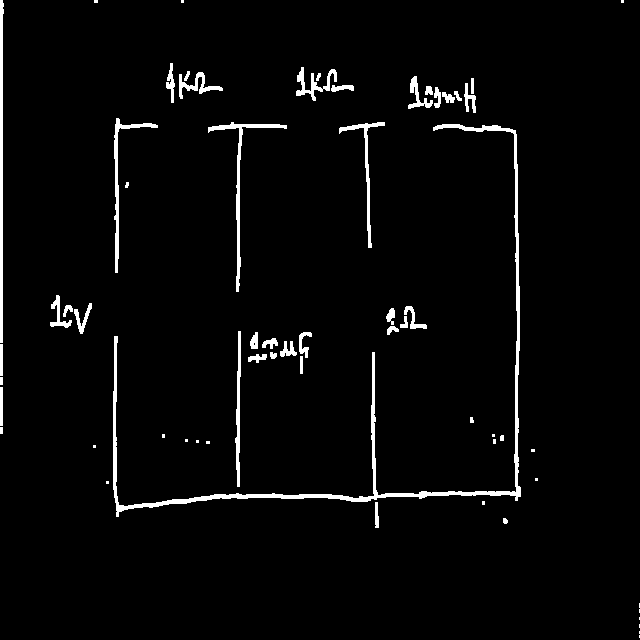 1KΩ
1KΩ
100mH
10V
100μF
2Ω